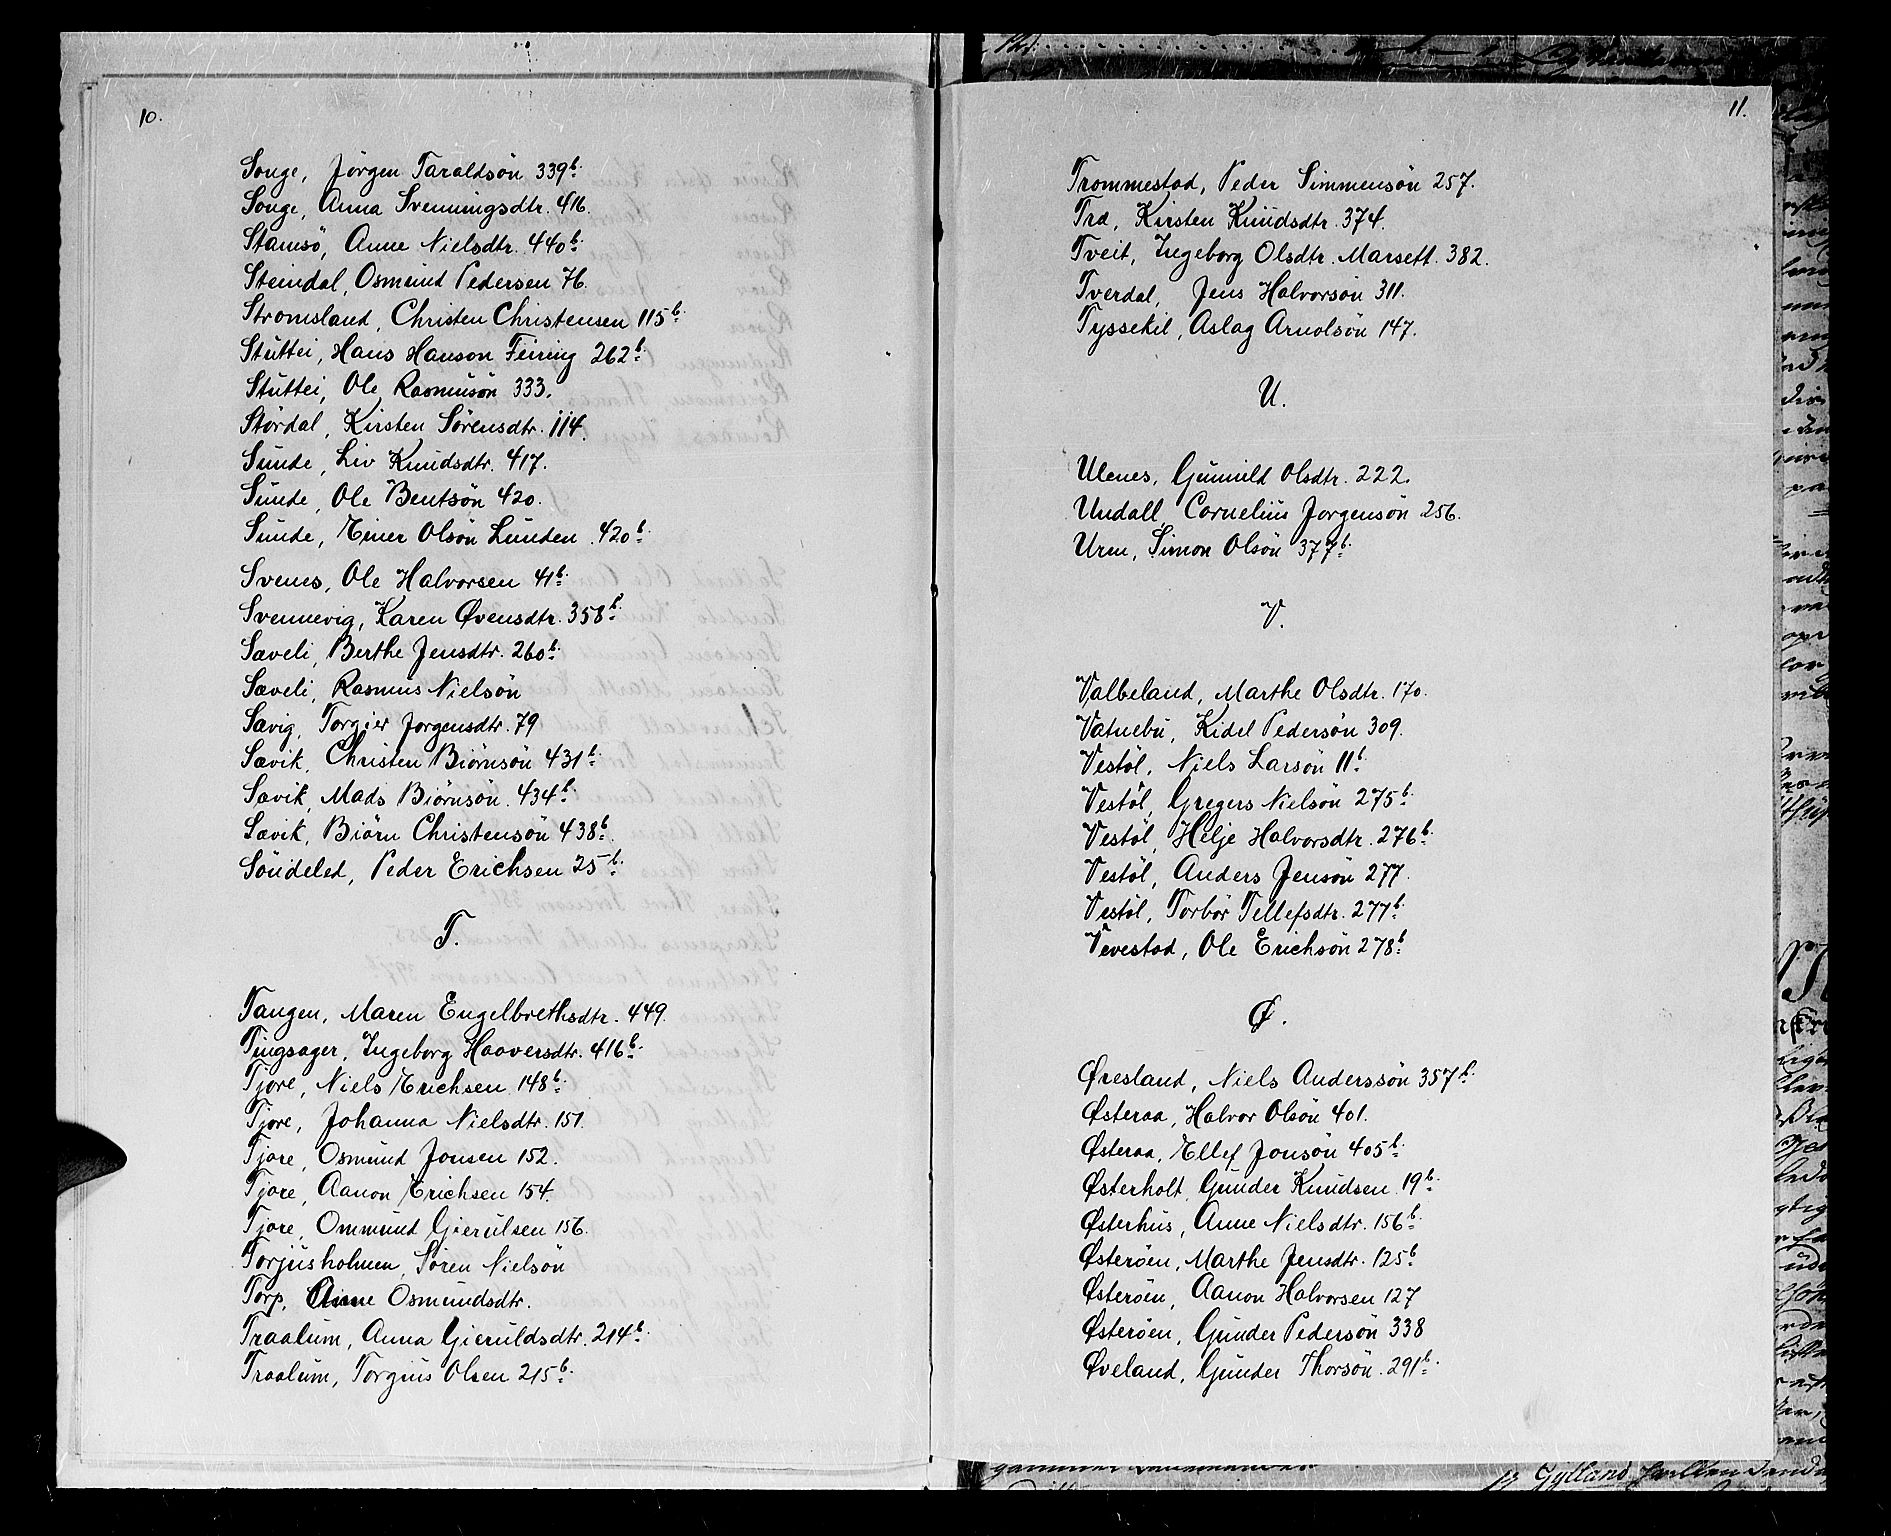 10.
Songe, Jörgen Taraldsön 339b.
Songe, Anna Svenningsdtr. 416.
Stamsö, Anne Nielsdtr. 440b.
Steindal, Osmund Pedersen 76.
Stromsland, Christen Christensen 115b.
Stuttei, Hans Hanson Feiring 262b.
Stuttei, Ole Rasmusön 333.
Stördal, Kirsten Sörensdtr. 114.
Sunde, Liv Knudsdtr. 417.
Sunde, Ole Bentsön 420.
Sunde, Einer Olsön Lunden. 420b.
Svenes, Ole Halvorsen 41b.
Svennevig, Karen Øvensdtr. 358b.
Sæveli, Berthe Jensdtr. 260b.
Sæveli, Rasmus Nielsön
Sævig, Torgier Jorgensdtr. 79
Sævik, Christen Biörnsön 431b.
Sævik, Mads Biörnsön. 434b.
Sævik, Biörn Christensön 438b.
Söndeled, Peder Erichsen 25b.
T.
Tangen, Maren Engelbrethsdtr. 449.
Tingsager, Ingeborg Haaversdtr. 416b.
Tjore, Niels Erichsen 148b.
Tjore, Johanna Nielsdtr. 151.
Tjore, Osmund Jonsen 152.
Tjore, Aanon Erichsen 154.
Tjore, Ommund Gierulsen 156.
Torjusholmen, Sören Nielsön
Torp, Anne Osmundsdtr.
Traalum, Anna Gieruldsdtr. 214b.
Traalum, Torgius Olsen 215b.
11.
Trommestad, Peder Simmensön 257.
Træ, Kirsten Knudsdtr. 374.
Tveit, Ingeborg Olsdtr. Marsett. 382.
Tverdal, Jens Halvorsön 311.
Tyssekil, Aslag Arnolsön 147.
U.
Ulenes, Gunnild Olsdtr. 222.
Undall, Cornelius Jorgensön 256.
Urm, Simon Olsön 377b.
V.
Valbeland, Marthe Olsdtr. 170.
Vatnebu, Kidel Pedersön 309.
Vestöl, Niels Larsön 11b.
Vestöl, Gregers Nielsön 275b.
Vestöl, Helje Halvorsdtr. 276b.
Vestöl, Anders Jensön 277.
Vestöl, Torbör Tellefsdtr. 277b.
Vevestad, Ole Erichsön 278b.
Ø.
Øresland, Niels Anderssön 357b.
Østeraa, Halvor Olsön 401.
Østeraa, Ellef Jonsön 405b.
Østerholt, Gunder Knudsen 19b.
Østerhus, Anne Nielsdtr. 156b.
Østeröen, Marthe Jensdtr. 125b
Østeröen, Aanon Halvorsen 127
Østeröen, Gunder Pedersön 338
Øveland, Gunder Thorsön. 291b.
Gylland